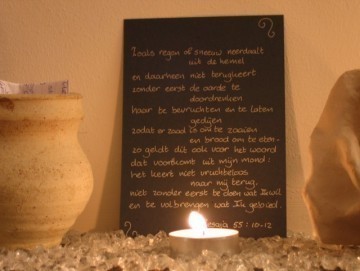 Zoals regen of sneeuw neerdaalt
uit de hemel
en daarheen niet terugkeert
zonder eerst de aarde te
doordrenken
haar te bevruchten en te laten
gedijen
zodat er zaad is om te zaaien
en brood om te eten -
zo geldt dit ook voor het woord
dat voortkomt uit mijn mond:
het keert niet vruchteloos
naar mij terug,
niet zonder eerst te doen wat Ik wil
en te volbrengen wat Ik gebied.
Jesaja 55:10-12